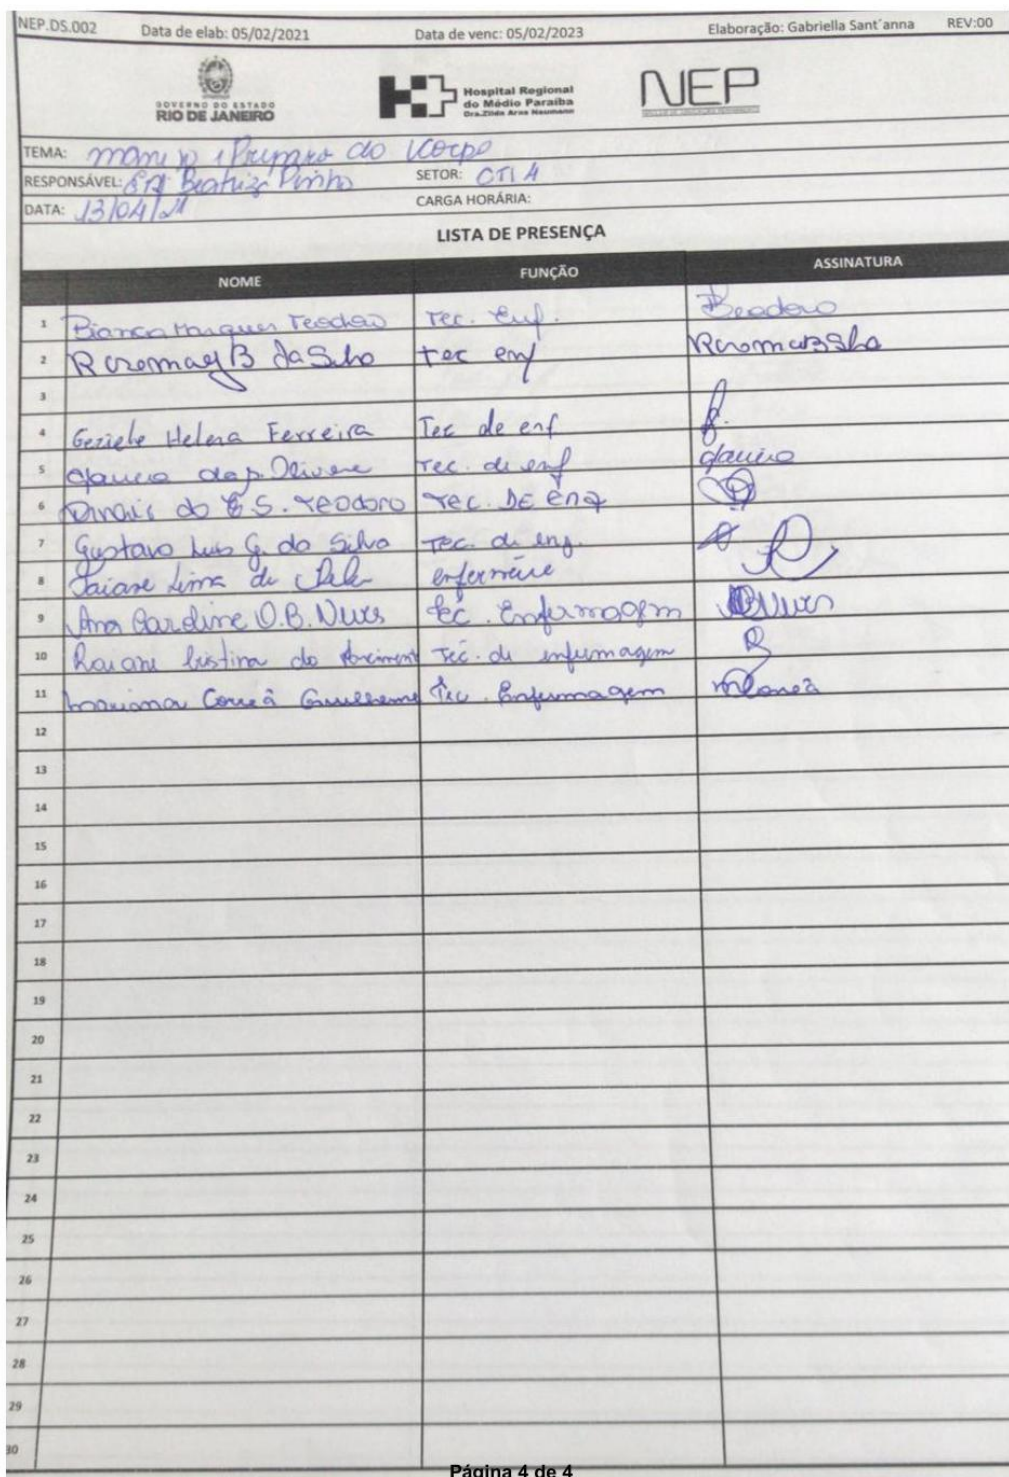 NEP.DS.002 Data de elab: 05/02/2021 Data de venc: 05/02/2023 Elaboração: Gabriella Sant´anna REV:00
GOVERNO DO ESTADO
RIO DE JANEIRO
Hospital Regional
do Médio Paraíba
Dra.Zilda Arns Neumann
NEP
TEMA: do Corpo
RESPONSÁVEL: Beatriz Pinho SETOR: CTI A
DATA: 13/04/21 CARGA HORÁRIA:
LISTA DE PRESENÇA
NOME FUNÇÃO ASSINATURA
1 Bianca Marques Teodoro Tec. Enf.
2 Rosemary B da Silva tec enf
3
4 Geziele Helena Ferreira Tec de enf
5 Tec. de enf
6 do E. S. Teodoro Tec. DE enf
7 Gustavo Luis G. da Silva Tec. de enf.
8 Taiane Lima de enfermeira
9 Ana Caroline O.B. Nunes Téc. Enfermagem
10 Raiane Cristina do Nascimento Téc. de enfermagem
11 Mariana Corrêa Guilherme Tec. Enfermagem
12
13
14
15
16
17
18
19
20
21
22
23
24
25
26
27
28
29
30
Página 4 de 4